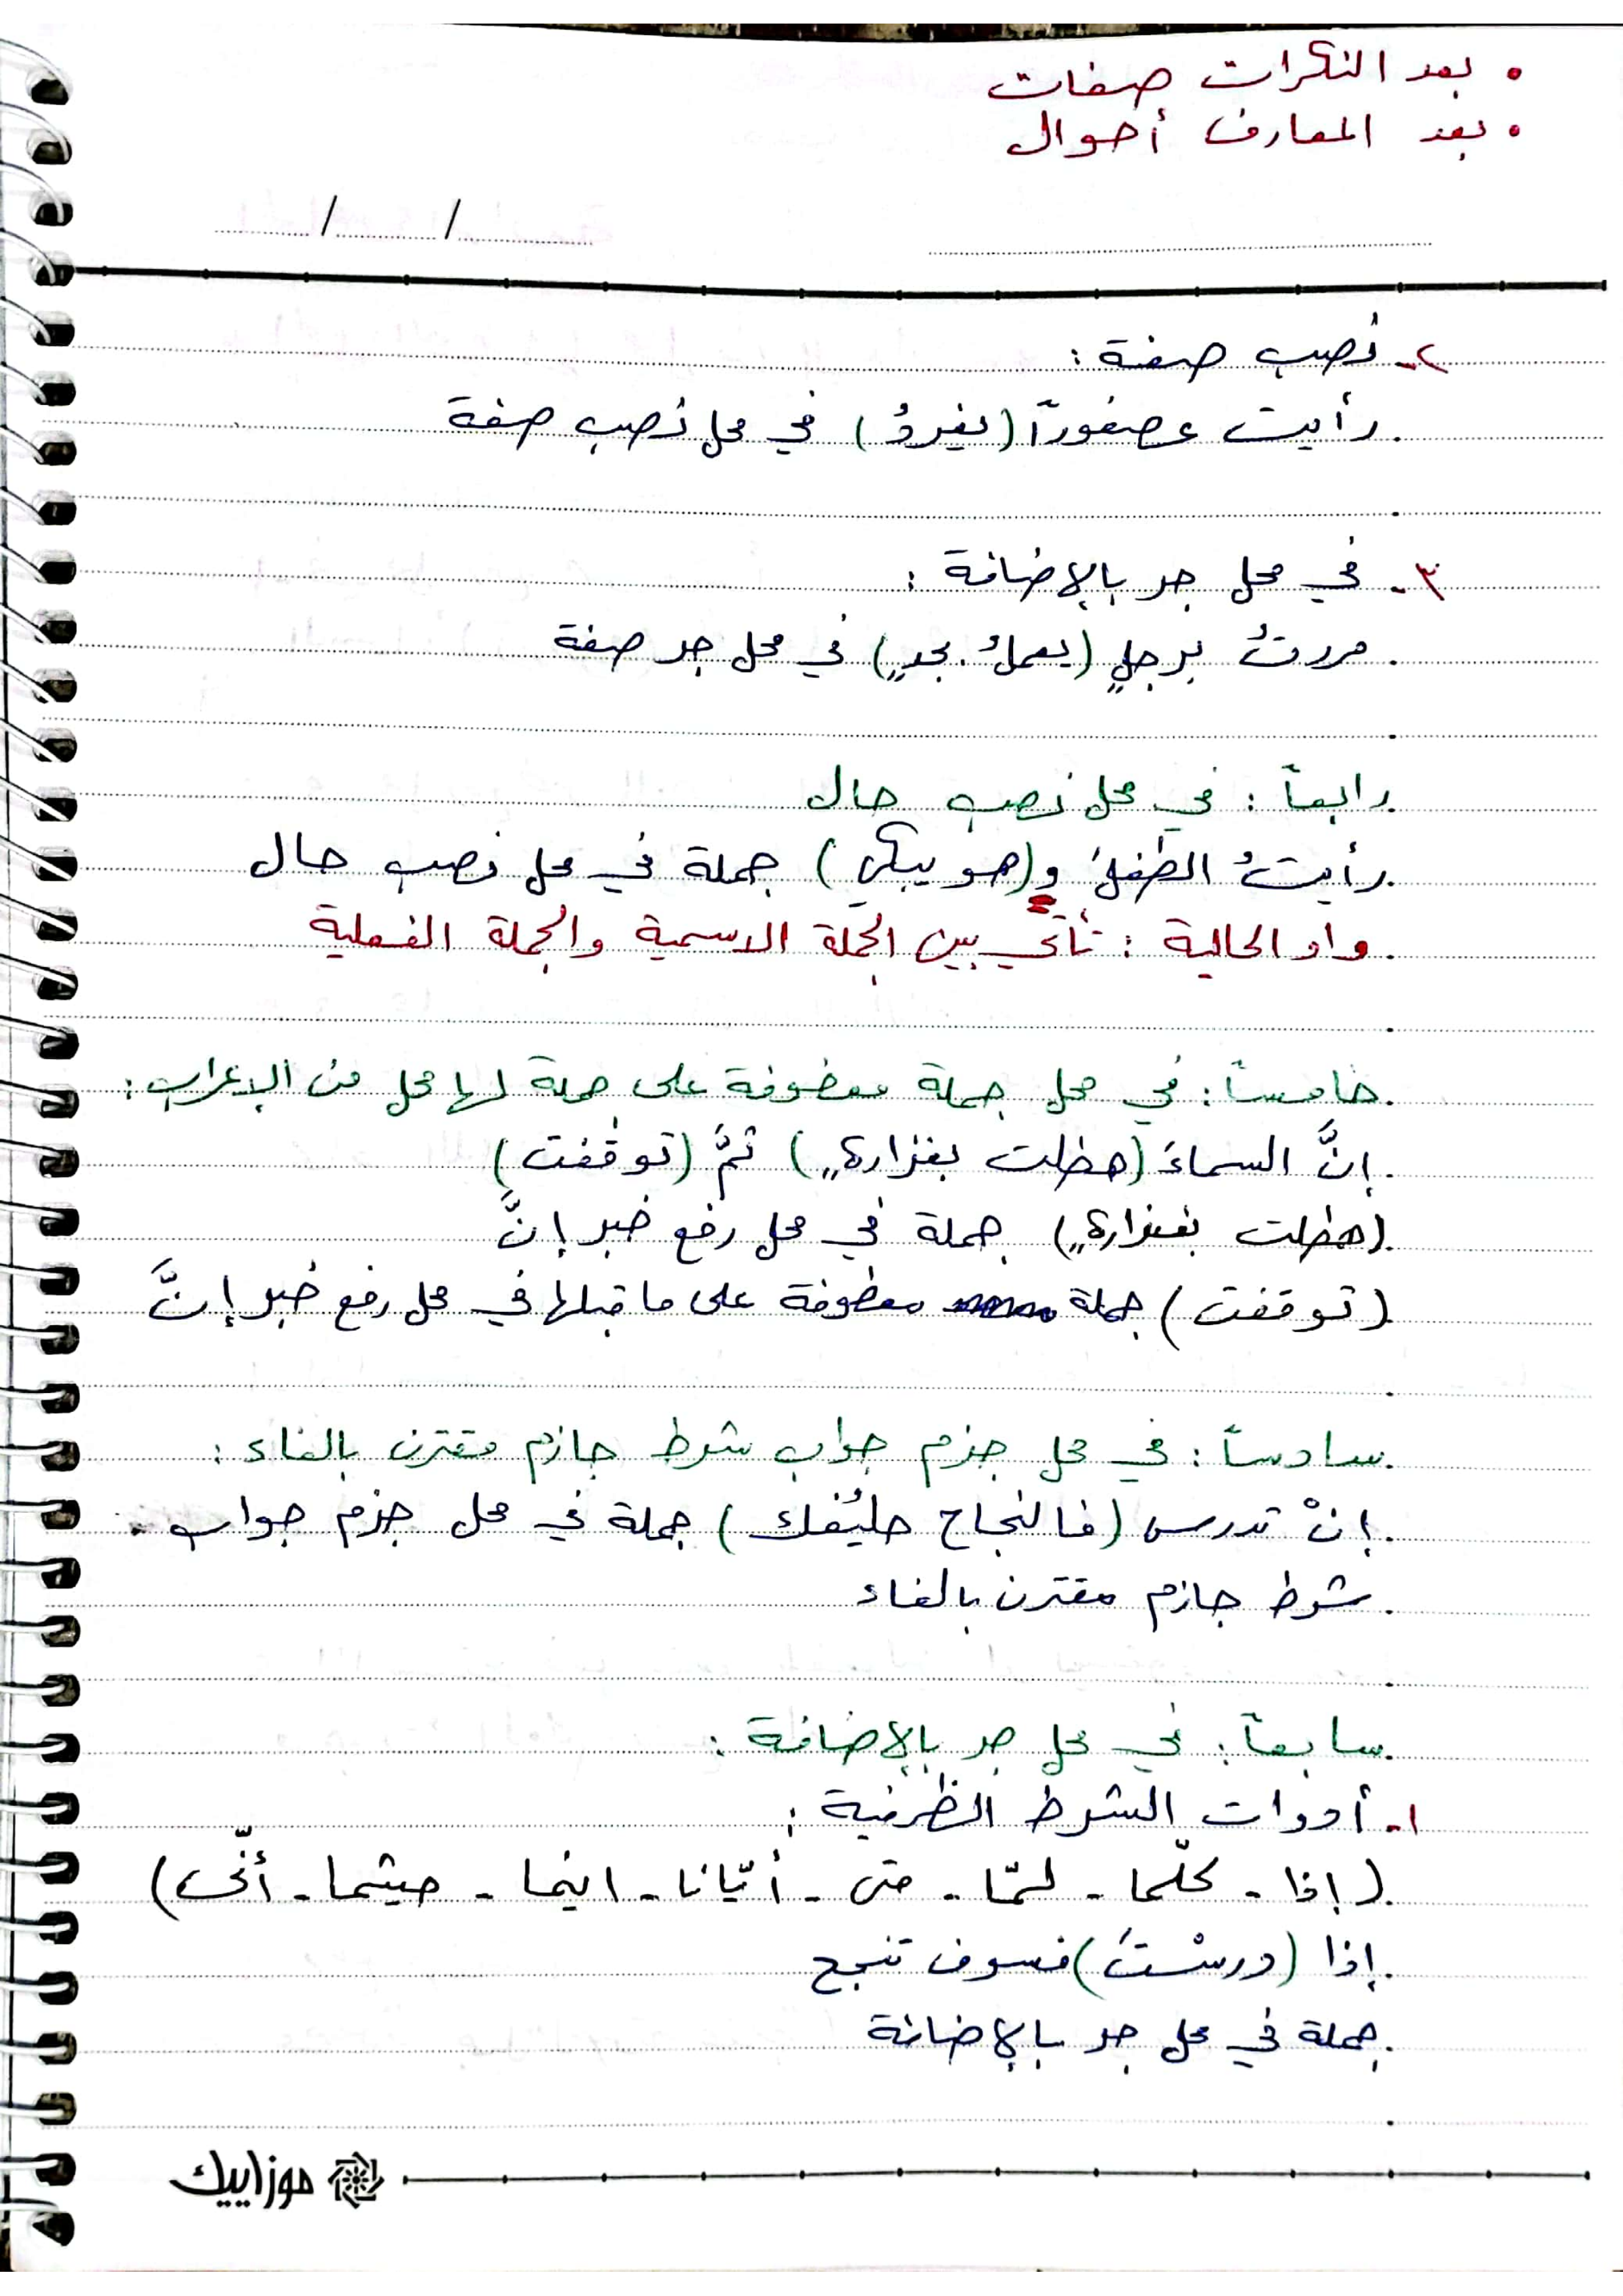 • بعد النكرات صفات
• بعد المعارف أحوال
/ /
٢- نصب صفة :
رأيت عصفوراً (يغردُ) في محل نصب صفة
٣- في محل جر بالإضافة :
مررتُ برجلٍ (يعملُ بجدٍ) في محل جر صفة
رابعاً : في محل نصب حال
رأيتُ الطفلَ و(هو يبكي) جملة في محل نصب حال
واو الحالية : تأتي بين الجملة الاسمية والجملة الفعلية
خامساً : في محل جملة معطوفة على جملة لها محل من الإعراب :
إنَّ السماءَ (هطلت بغزارةٍ) ثمَّ (توقفت)
(هطلت بغزارةٍ) جملة في محل رفع خبر إنَّ
(توقفت) جملة معطوفة على ما قبلها في محل رفع خبر إنَّ
سادساً : في محل جزم جواب شرط جازم مقترن بالفاء :
إنْ تدرس (فالنجاح حليفك) جملة في محل جزم جواب
شرط جازم مقترن بالفاء
سابعاً : في محل جر بالإضافة :
١- أدوات الشرط الظرفية :
(إذا - كلّما - لمّا - متى - أيّانا - اينما - حيثما - أنّى)
إذا (درسْتَ) فسوف تنجح
جملة في محل جر بالإضافة
موزاييك